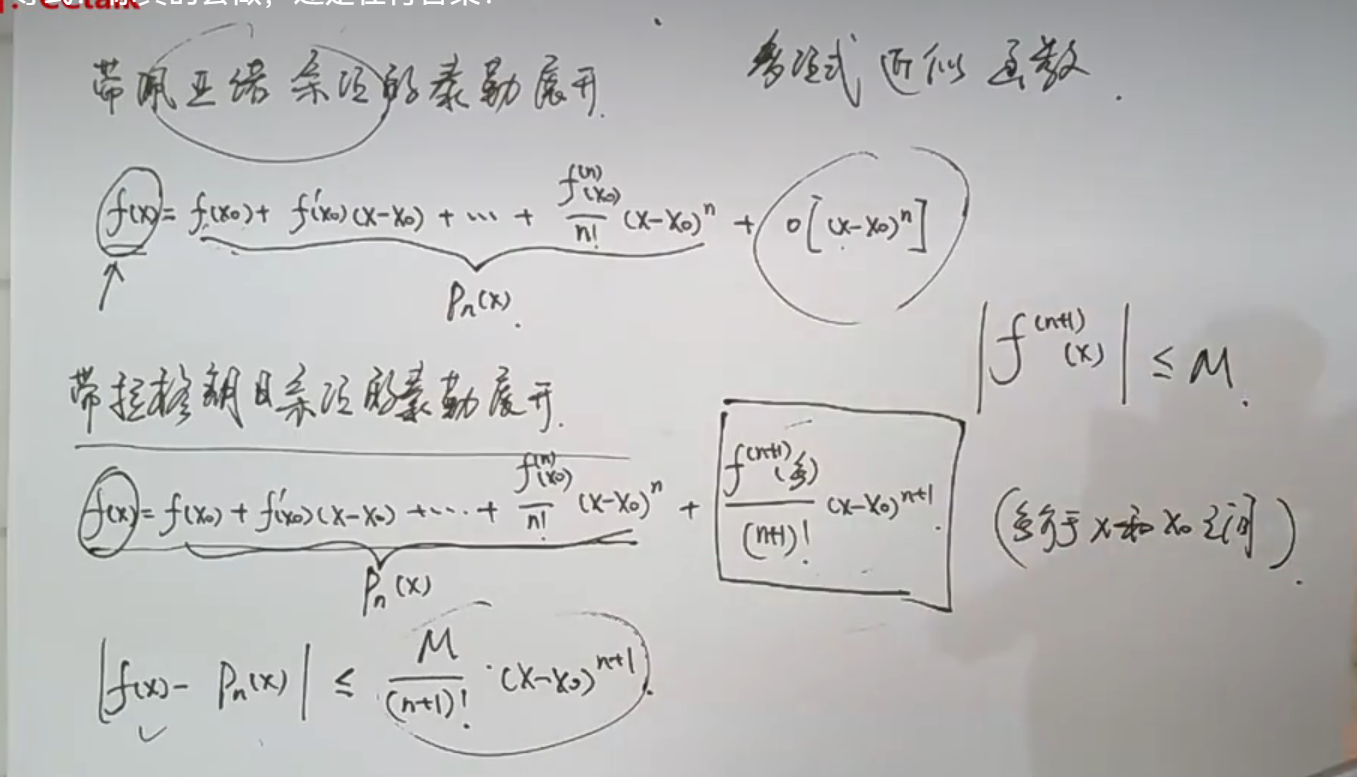 CCtalk
带佩亚诺余项的泰勒展开.
多项式近似函数.
f(x) = f(x₀) + f'(x₀)(x-x₀) + … + f⁽ⁿ⁾(x₀)/n! (x-x₀)ⁿ + o[(x-x₀)ⁿ]
Pₙ(x).
|f⁽ⁿ⁺¹⁾(x)| ≤ M.
带拉格朗日余项的泰勒展开.
f(x) = f(x₀) + f'(x₀)(x-x₀) + … + f⁽ⁿ⁾(x₀)/n! (x-x₀)ⁿ + f⁽ⁿ⁺¹⁾(ξ)/(n+1)! (x-x₀)ⁿ⁺¹.
(ξ介于x和x₀之间).
Pₙ(x)
|f(x) - Pₙ(x)| ≤ M/(n+1)! · (x-x₀)ⁿ⁺¹.